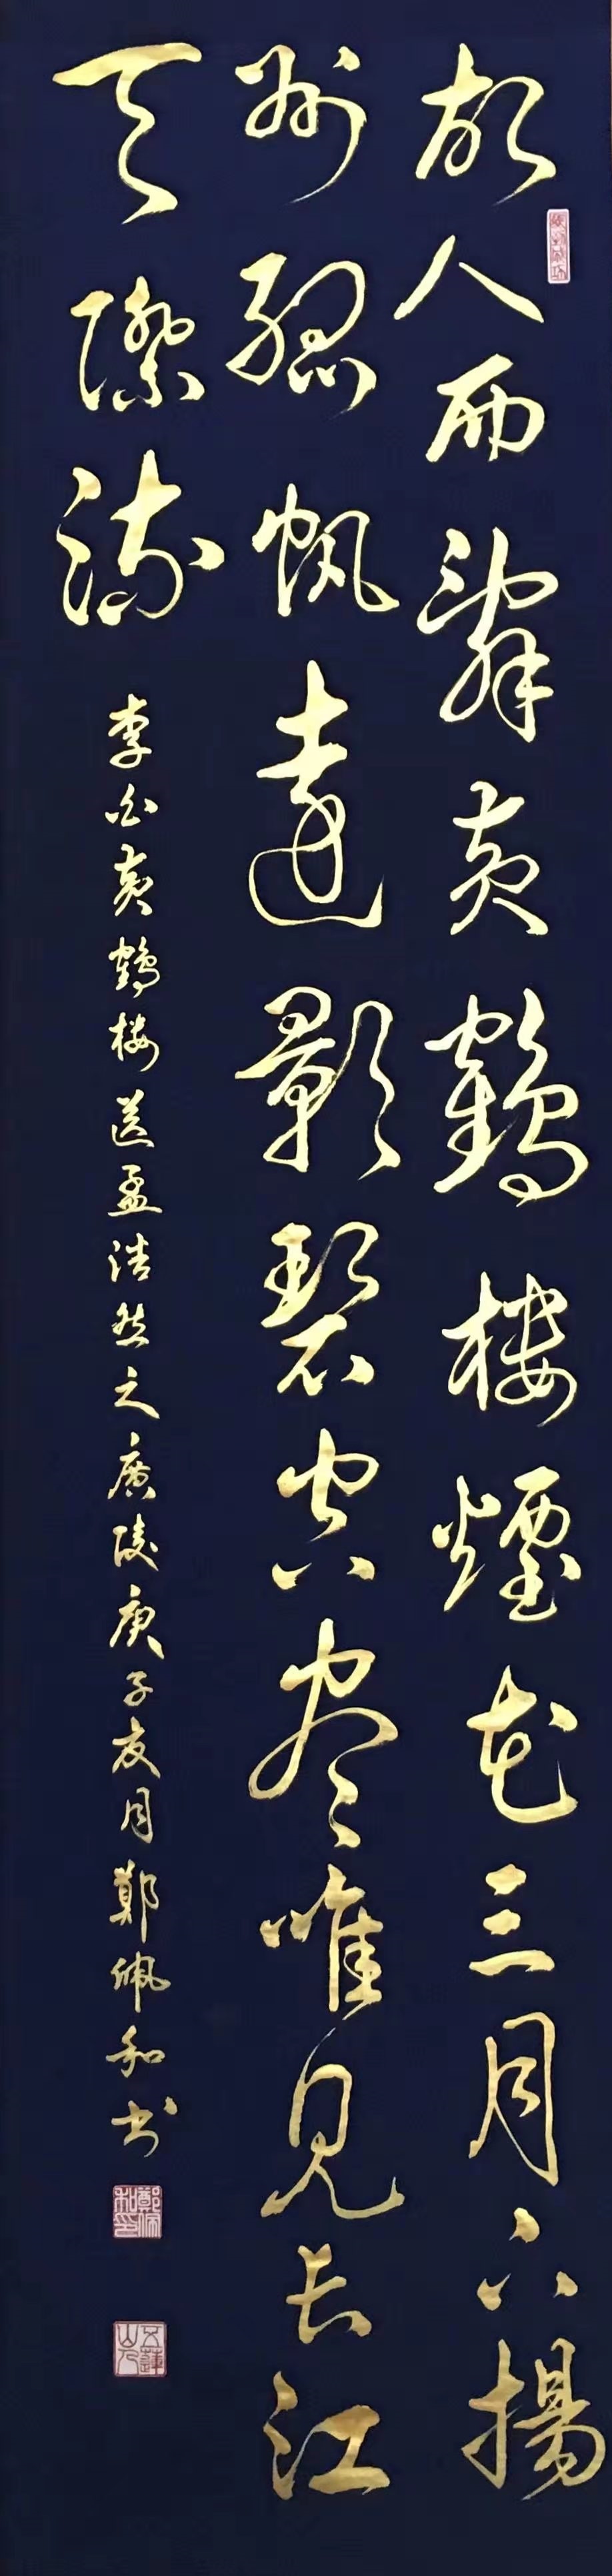 故人西辭黄鶴樓煙花三月下揚
州孤帆遠影碧空盡唯見長江
天際流
李白黄鶴樓送孟浩然之廣陵庚子夏月鄭佩和书
鄭佩和印
五蓮山人